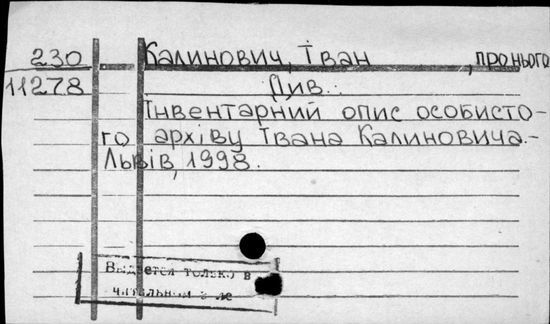 230 Калинович, Іван, про нього
11278 Див.:
Інвентарний опис особисто-
го архіву Івана Калиновича.-
Львів, 1998.
Выдается только в
читальном зале